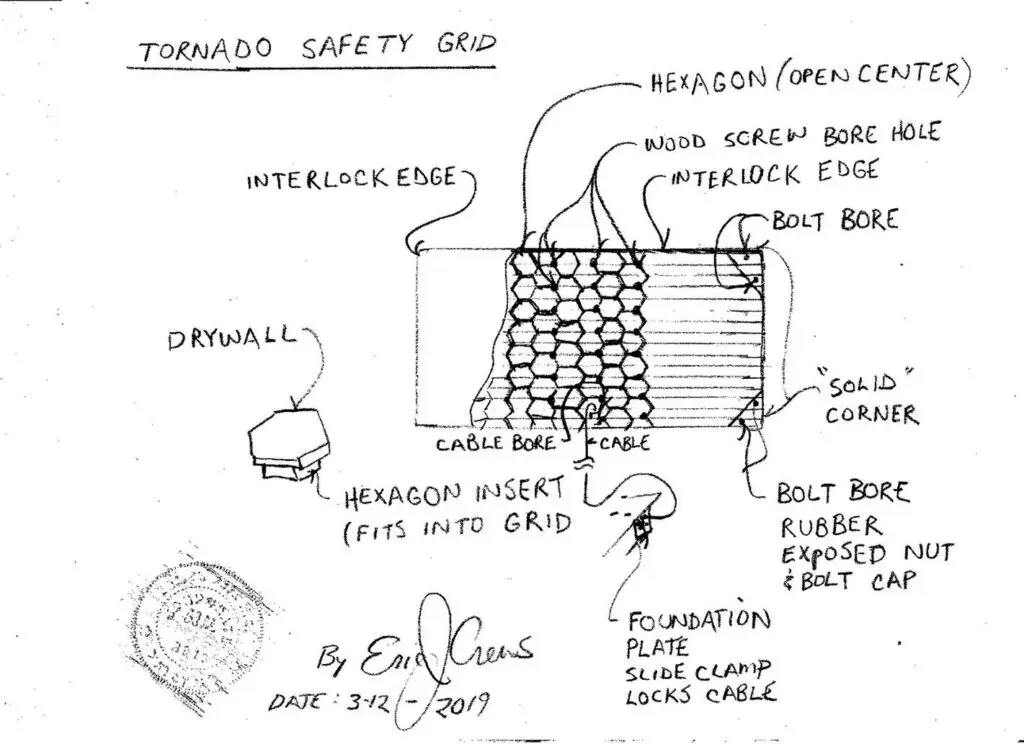 TORNADO SAFETY GRID
HEXAGON (OPEN CENTER)
WOOD SCREW BORE HOLE
INTERLOCK EDGE
INTERLOCK EDGE
BOLT BORE
DRYWALL
"SOLID"
CORNER
CABLE BORE
CABLE
HEXAGON INSERT
(FITS INTO GRID
BOLT BORE
RUBBER
EXPOSED NUT
& BOLT CAP
FOUNDATION
PLATE
SLIDE CLAMP
LOCKS CABLE
By Eric J Crews
DATE: 3-12-2019